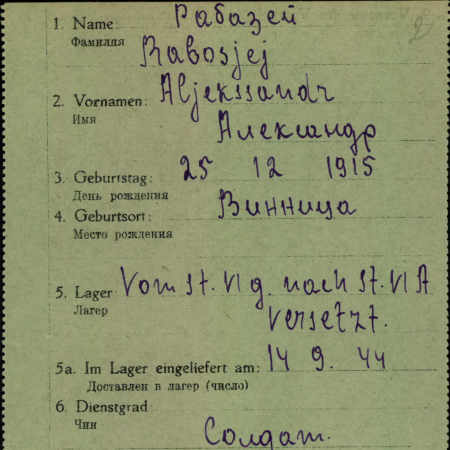 1. Name: Рабазей
Фамилия
Rabosjej
2. Vornamen: Aljekssandr
Имя
Александр
3. Geburtstag: 25 12 1915
День рождения
4. Geburtsort: Винница
Место рождения
5. Lager Vom St. VI g. nach St. VI A
Лагер
versetzt.
5a. Im Lager eingeliefert am: 14 9. 44
Доставлен в лагер (число)
6. Dienstgrad
Чин
Солдат.